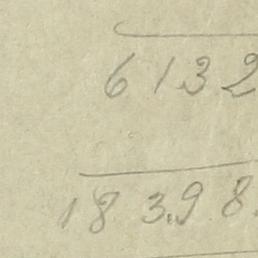 6132
183.98.